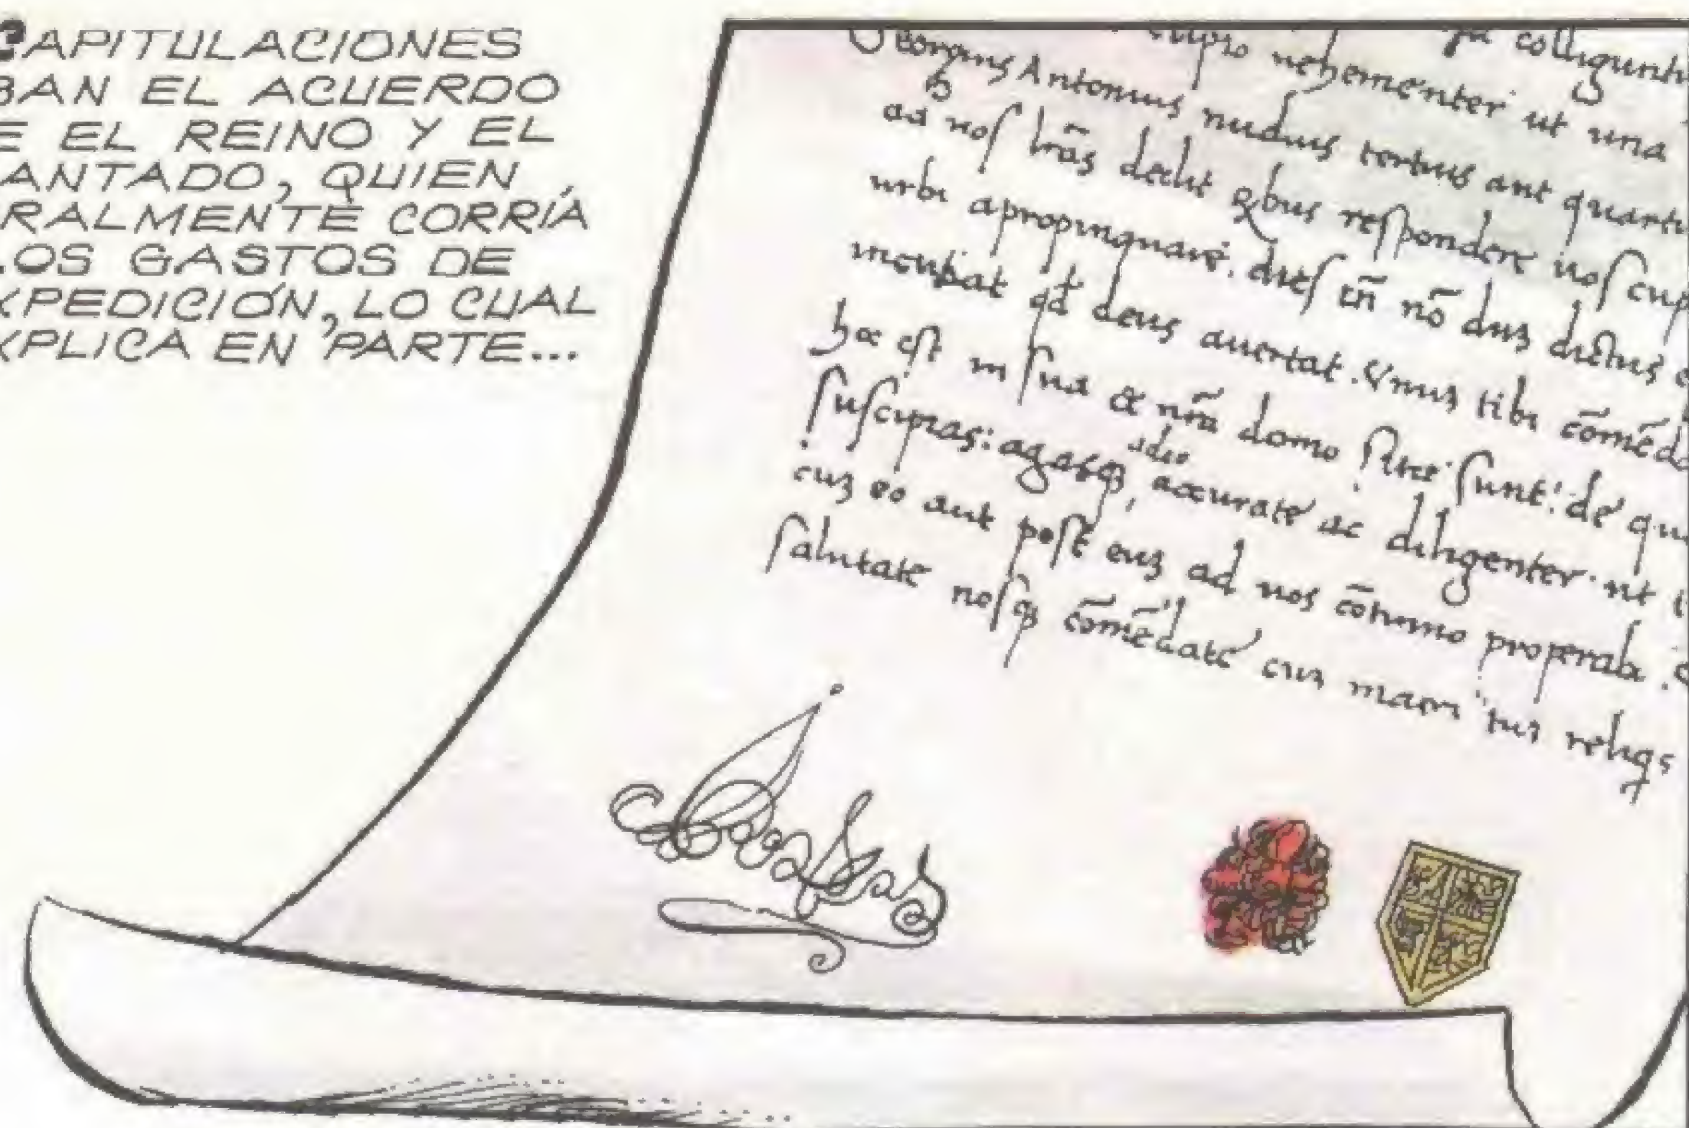 CAPITULACIONES
BAN EL ACUERDO
E EL REINO Y EL
ANTADO, QUIEN
RALMENTE CORRÍA
LOS GASTOS DE
XPEDICIÓN, LO CUAL
XPLICA EN PARTE...
nehementer ut una
Georgius Antonius nudius tertius ant quarta
ad nos lrās dedit respondere nos cup
urbi apropinquare. dies tn̄ nō duz dictus
incubat qd deus auertat. Vnuz tibi cōmēdo
hoc est in sua & nrā domo sitae sunt: de qu
suscipias: agasq, adeo accurate ac diligenter ut
cuz eo aut post euz ad nos cōtinuo properabi.
salutate nosq cōmēdate cuz matri tui reliqs